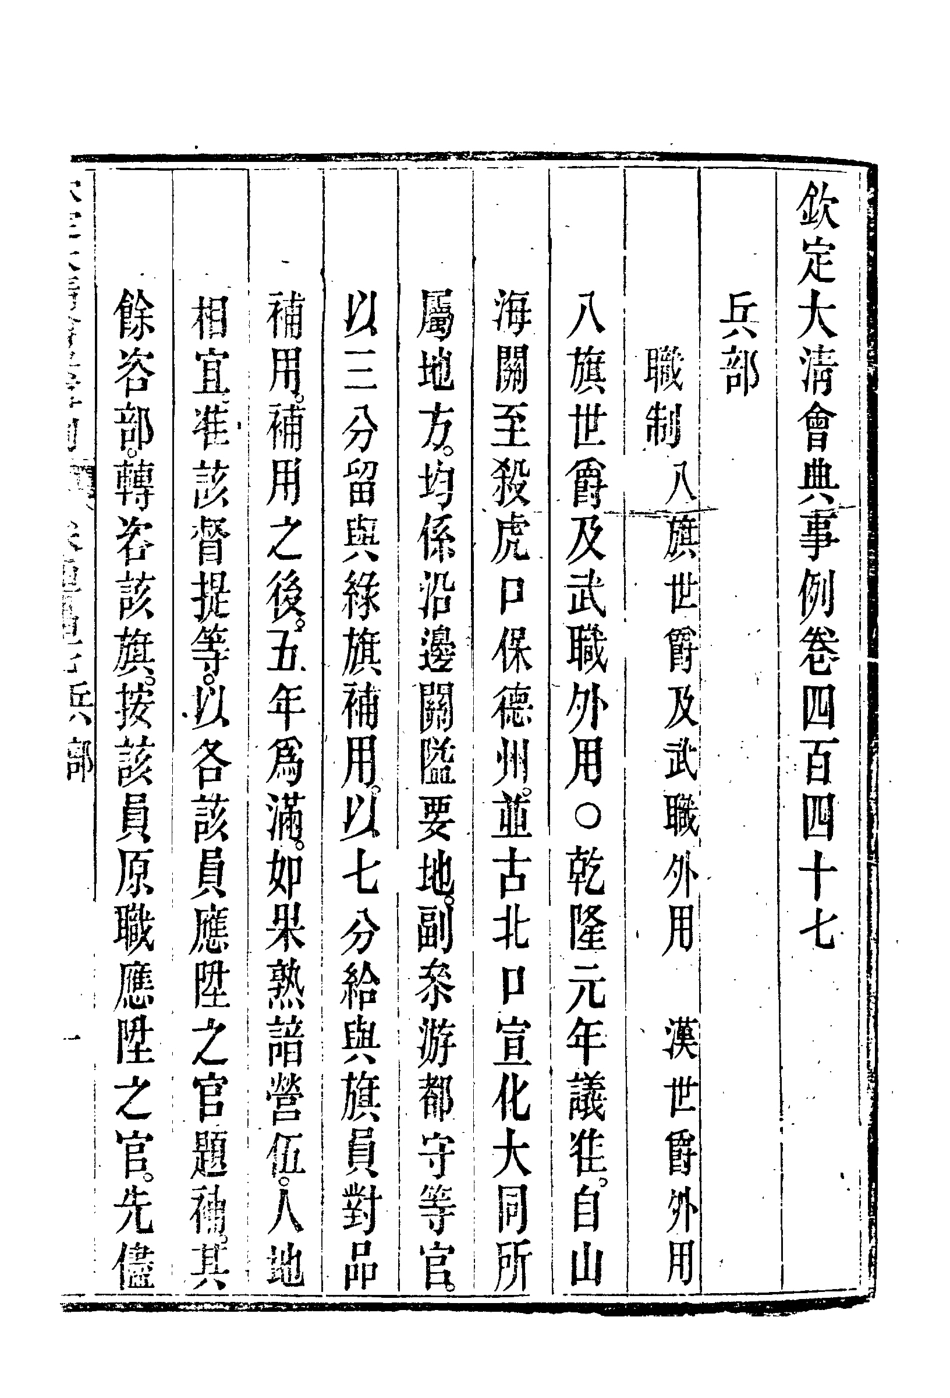 欽定大清會典事例卷四百四十七
兵部
職制 八旗世爵及武職外用 漢世爵外用
八旗世爵及武職外用○乾隆元年議准。自山
海關至殺虎口保德州。並古北口宣化大同所
屬地方。均係沿邊關隘要地。副叅游都守等官。
以三分留與綠旗補用。以七分給與旗員對品
補用。補用之後。五年爲滿。如果熟諳營伍。人地
相宜。准該督提等。以各該員應陞之官題補。其
餘咨部。轉咨該旗。按該員原職應陞之官。先儘
兵部 一